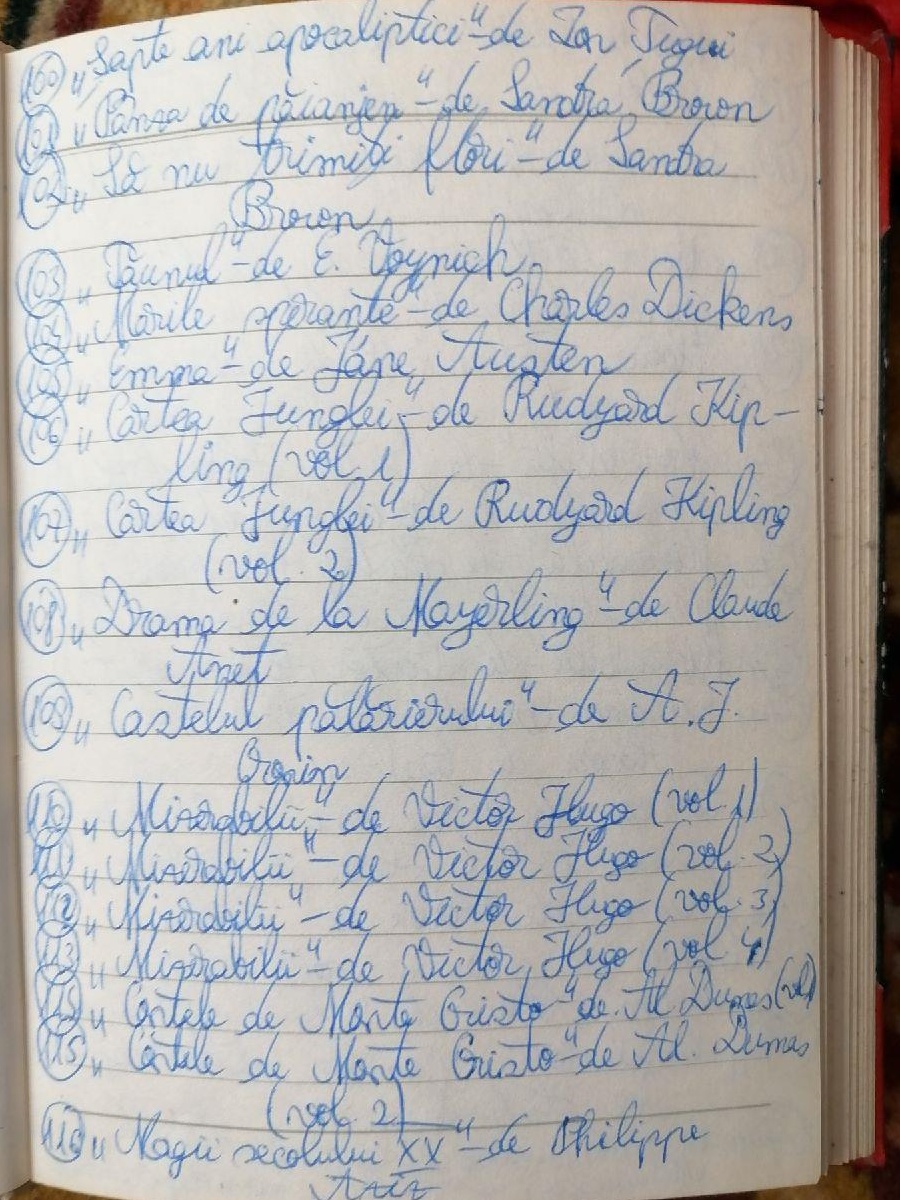 100 „Șapte ani apocaliptici" - de Ion Țugui
101 „Pânza de păianjen" - de Sandra Brown
102 „Să nu trimiți flori" - de Sandra
Brown
103 „Tăunul" - de E. Voynich
104 „Marile speranțe" - de Charles Dickens
105 „Emma" - de Jane Austen
106 „Cartea Junglei" - de Rudyard Kip-
ling (vol. 1)
107 „Cartea Junglei" - de Rudyard Kipling
(vol. 2)
108 „Drama de la Mayerling" - de Claude
Anet
109 „Castelul pălărierului" - de A. J.
Cronin
110 „Mizerabilii" - de Victor Hugo (vol 1)
111 „Mizerabilii" - de Victor Hugo (vol. 2)
112 „Mizerabilii" - de Victor Hugo (vol. 3)
113 „Mizerabilii" - de Victor Hugo (vol 4)
114 „Contele de Monte Cristo" de Al. Dumas (vol 1)
115 „Contele de Monte Cristo" - de Al. Dumas
(vol. 2)
116 „Magii secolului XX" - de Philippe
Aziz